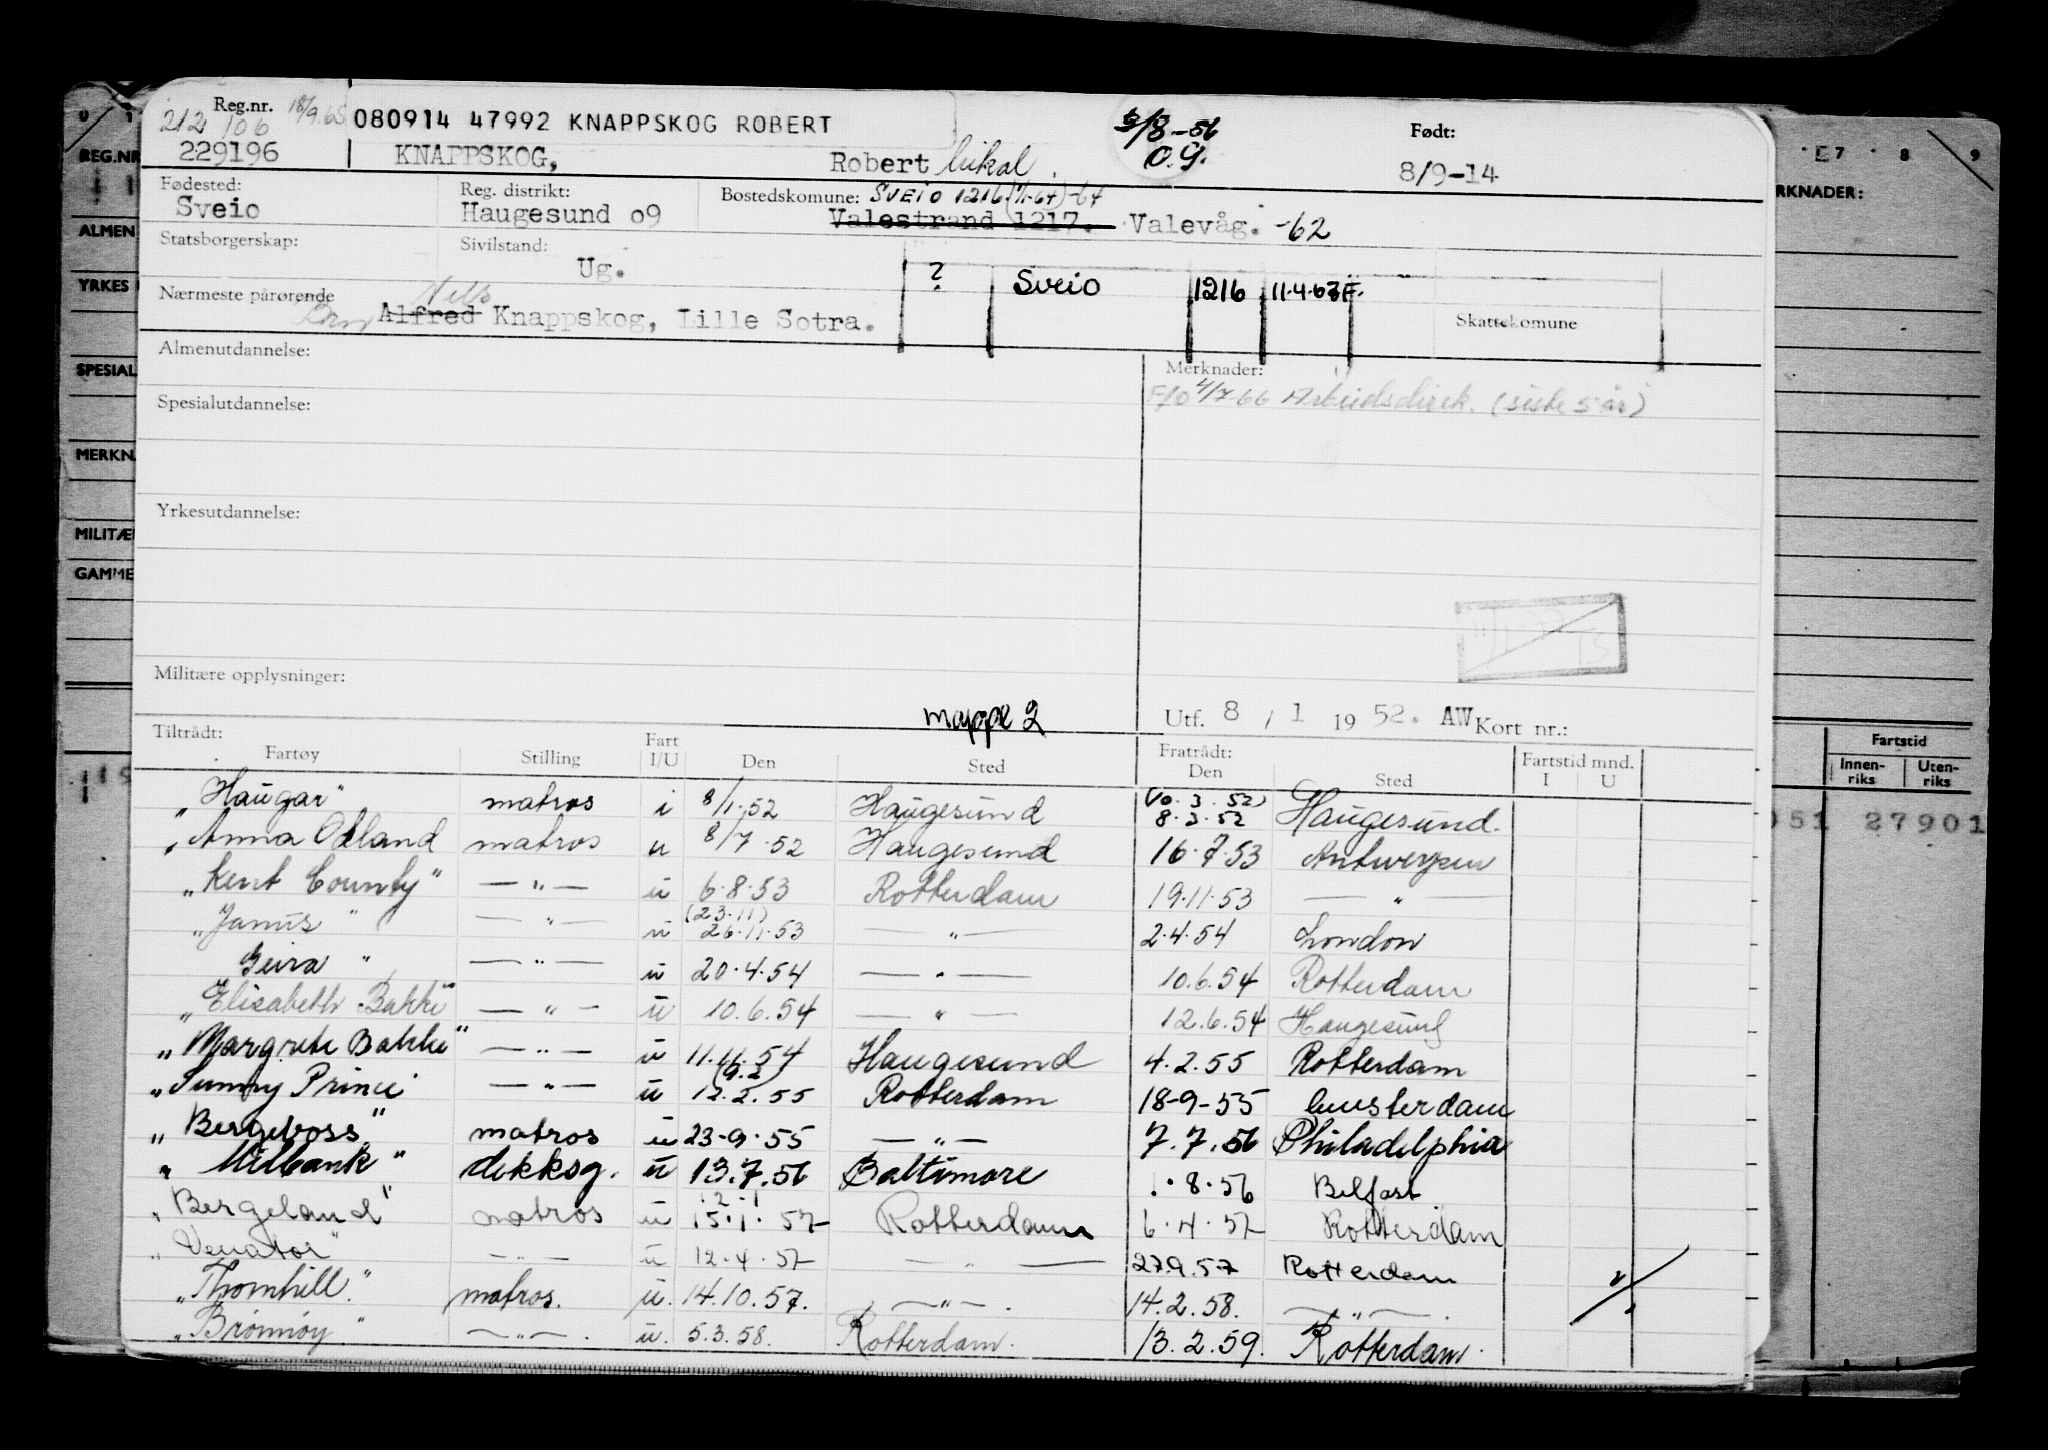 Reg.nr. 18/9.65
212 106 080914 47992 KNAPPSKOG ROBERT 3/8-56 Født:
229196 KNAPPSKOG, Robert Mikal. O.G. 8/9-14
Fødested: Reg. distrikt: Bostedskomune: SVEIO 1216 (1/1-64) -64
Sveio Haugesund o9 Valestrand 1217. Valevåg. -62
Statsborgerskap: Sivilstand:
Ug. ? Sveio 1216 11.4.67 F.
Nærmeste pårørende Nels
Alfred Knappskog, Lille Sotra. Skattekomune
Almenutdannelse: Merknader:
F/O 4/7 66 Arbeidsdirek. (siste 5 år)
Spesialutdannelse:
Yrkesutdannelse:
Militære opplysninger:
mappe 2 Utf. 8 / 1 19 52. AW Kort nr.:
Tiltrådt: Fart Fratrådt: Fartstid mnd.
Fartøy Stilling I/U Den Sted Den Sted I U
"Haugar" matros i 8/1.52 Haugesund (10.3.52) 8.3.52 Haugesund.
"Anna Odland matros u 8/7.52 Haugesund 16.7.53 Antwerpen
"Kent County" — " — u 6.8.53 Rotterdam 19.11.53 — " —
"Janus " — " — u (23.11) 26.11.53 — " — 2.4.54 London
Geira " — " — u 20.4.54 — " — 10.6.54 Rotterdam
"Elisabeth Bakke" — " — u 10.6.54 — " — 12.6.54 Haugesund
"Margrete Bakke" — " — u 11.11.54 Haugesund 4.2.55 Rotterdam
"Sunny Prince — " — u (9.2) 12.2.55 Rotterdam 18-9-55 Amsterdam
"Bergeboss" matros u 23-9.55 — " — 7.7.56 Philadelphia
"Milbank" dekksg. u 13.7.56 Baltimore 1.8.56 Belfast
"Bergeland" matros u 12.1 15.1.57 Rotterdam 6.4.57 Rotterdam
"Venator" — " — u 12.4.57 — " — 27.9.57 Rotterdam
"Thornhill." matros. u. 14.10.57. — " — . 14.2.58. — " — .
"Brønnøy" — " — . u. 5.3.58. Rotterdam. 13.2.59. Rotterdam.
REG.NR
ALMEN
YRKES
SPESIAL
MERKN.
MILITÆ
GAMME
7 8 9
RKNADER:
Fartstid
Innen-riks Uten-riks
051 27901